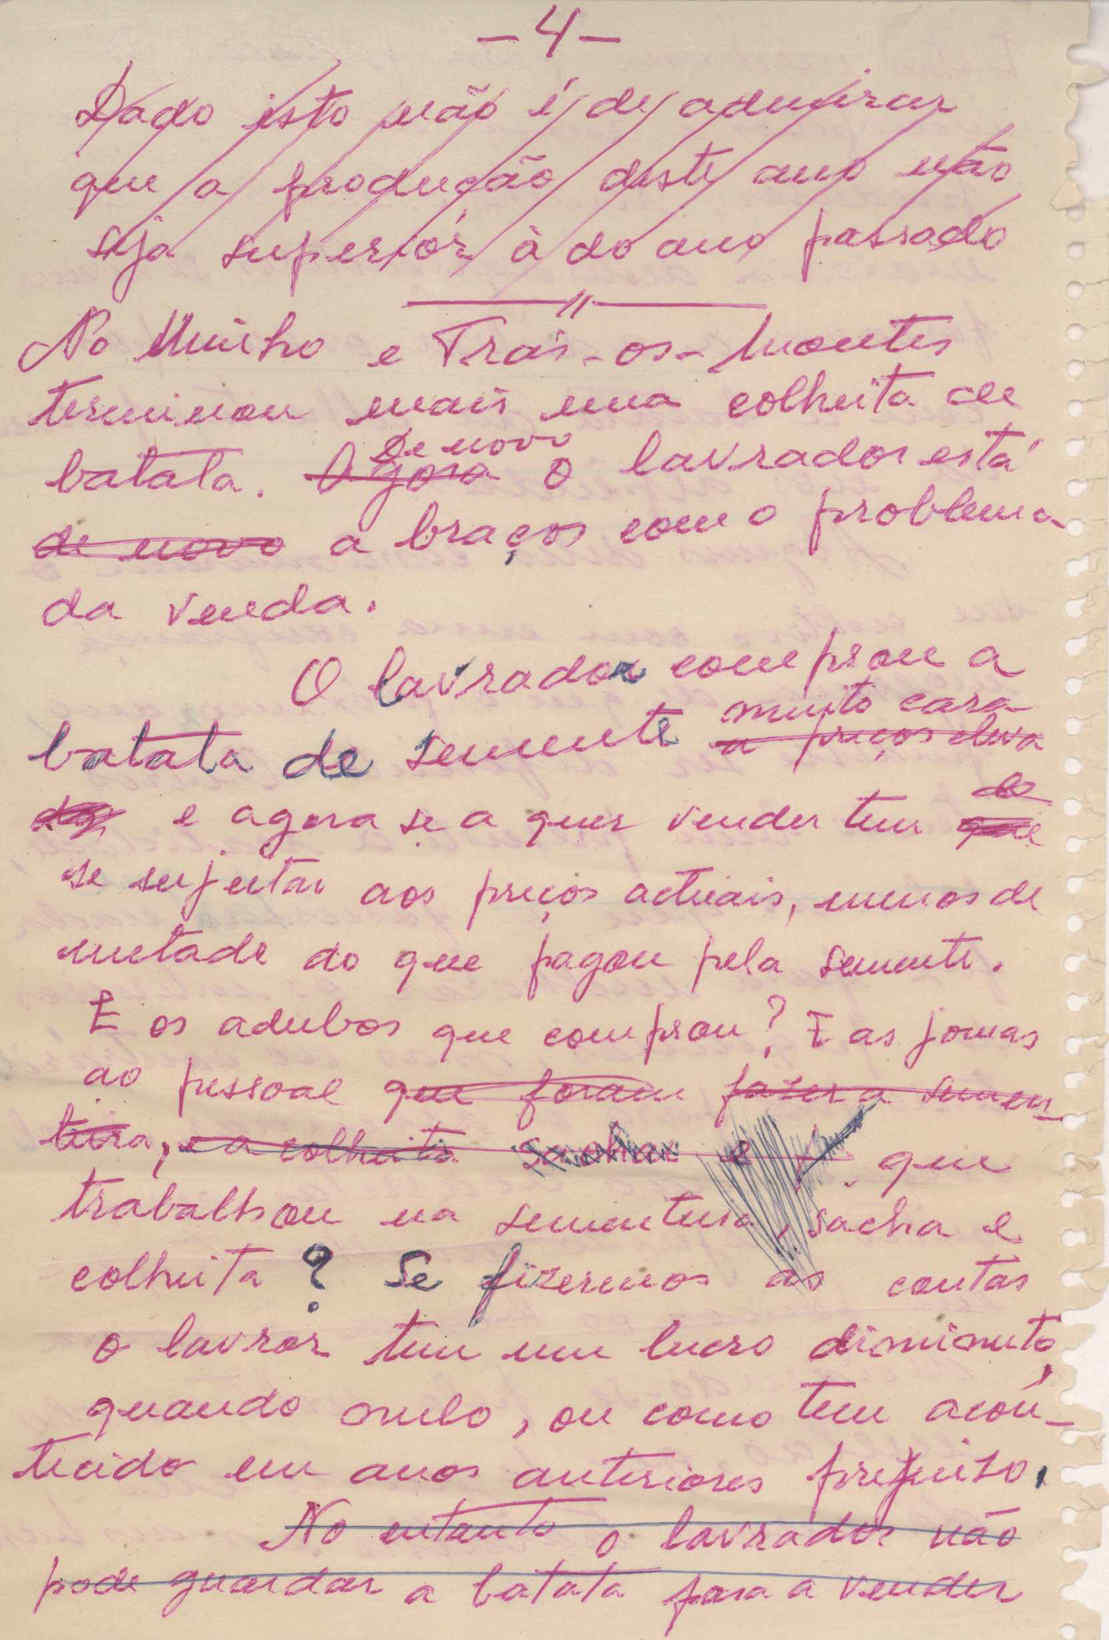 - 4 -
Dado isto não é de admirar
que a produção deste ano não
seja superior à do ano passado
No Minho e Trás-os-Montes
terminou mais uma colheita de
De novo
batata. Agora o lavrador está
de novo a braços com o problema
da venda.
O lavrador comprou a
muito cara
batata de semente a preços eleva
dos e agora se a quer vender tem que
de
se sujeitar aos preços actuais, menos de
metade do que pagou pela semente.
E os adubos que comprou? E as jornas
ao pessoal que foram fazer a semen
teira, e a colheita sachar e que
trabalhou na sementeira, sacha e
colheita? Se fizermos as contas
o lavror tem um lucro diminuto,
quando nulo, ou como tem acon-
tecido em anos anteriores prejuizo.
No entanto o lavrador não
pode guardar a batata para a vender